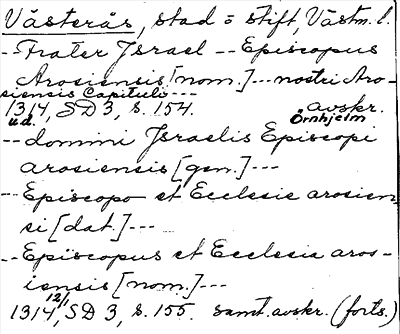 Västerås, stad o stift, Västm. l.
-- Frater Israel -- Episcopus
Arosiensis [nom.] --- nostri Aro-
siensis Capituli ---
1314, SD 3, s. 154. avskr.
u.d. Örnhjelm
-- domini Israelis Episcopi
arosiensis [gen.] ---
-- Episcopo et Ecclesie arosien-
si [dat.] ---
-- Episcopus et Ecclesia aros-
iensis [nom.] ---
1314 12/1, SD 3, s. 155. samt. avskr. (forts.)